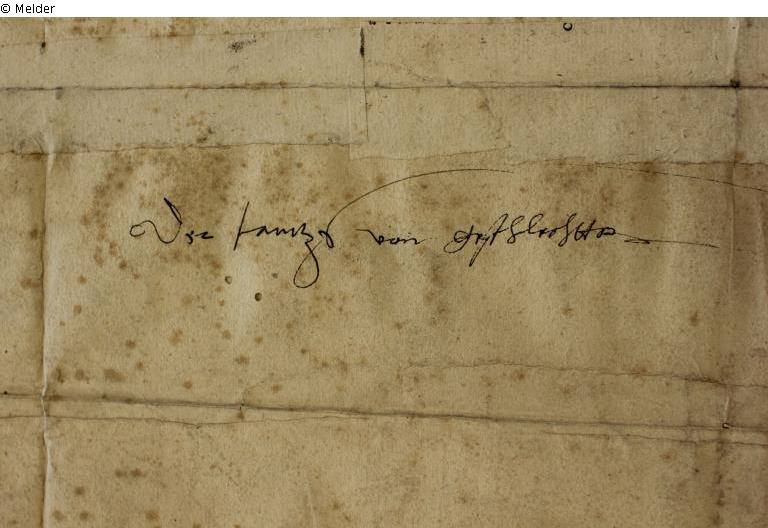 © Melder
Der tantz von